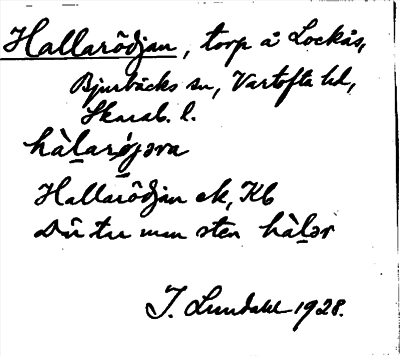 Hallarödjan, torp å Lockås,
Bjurbäcks sn, Vartofta hd,
Skarab. l.
hàl̠arø̠jəna
Hallarödjan ek, Kb
Där tar man sten hàl̠ər
I. Lundahl 1928.